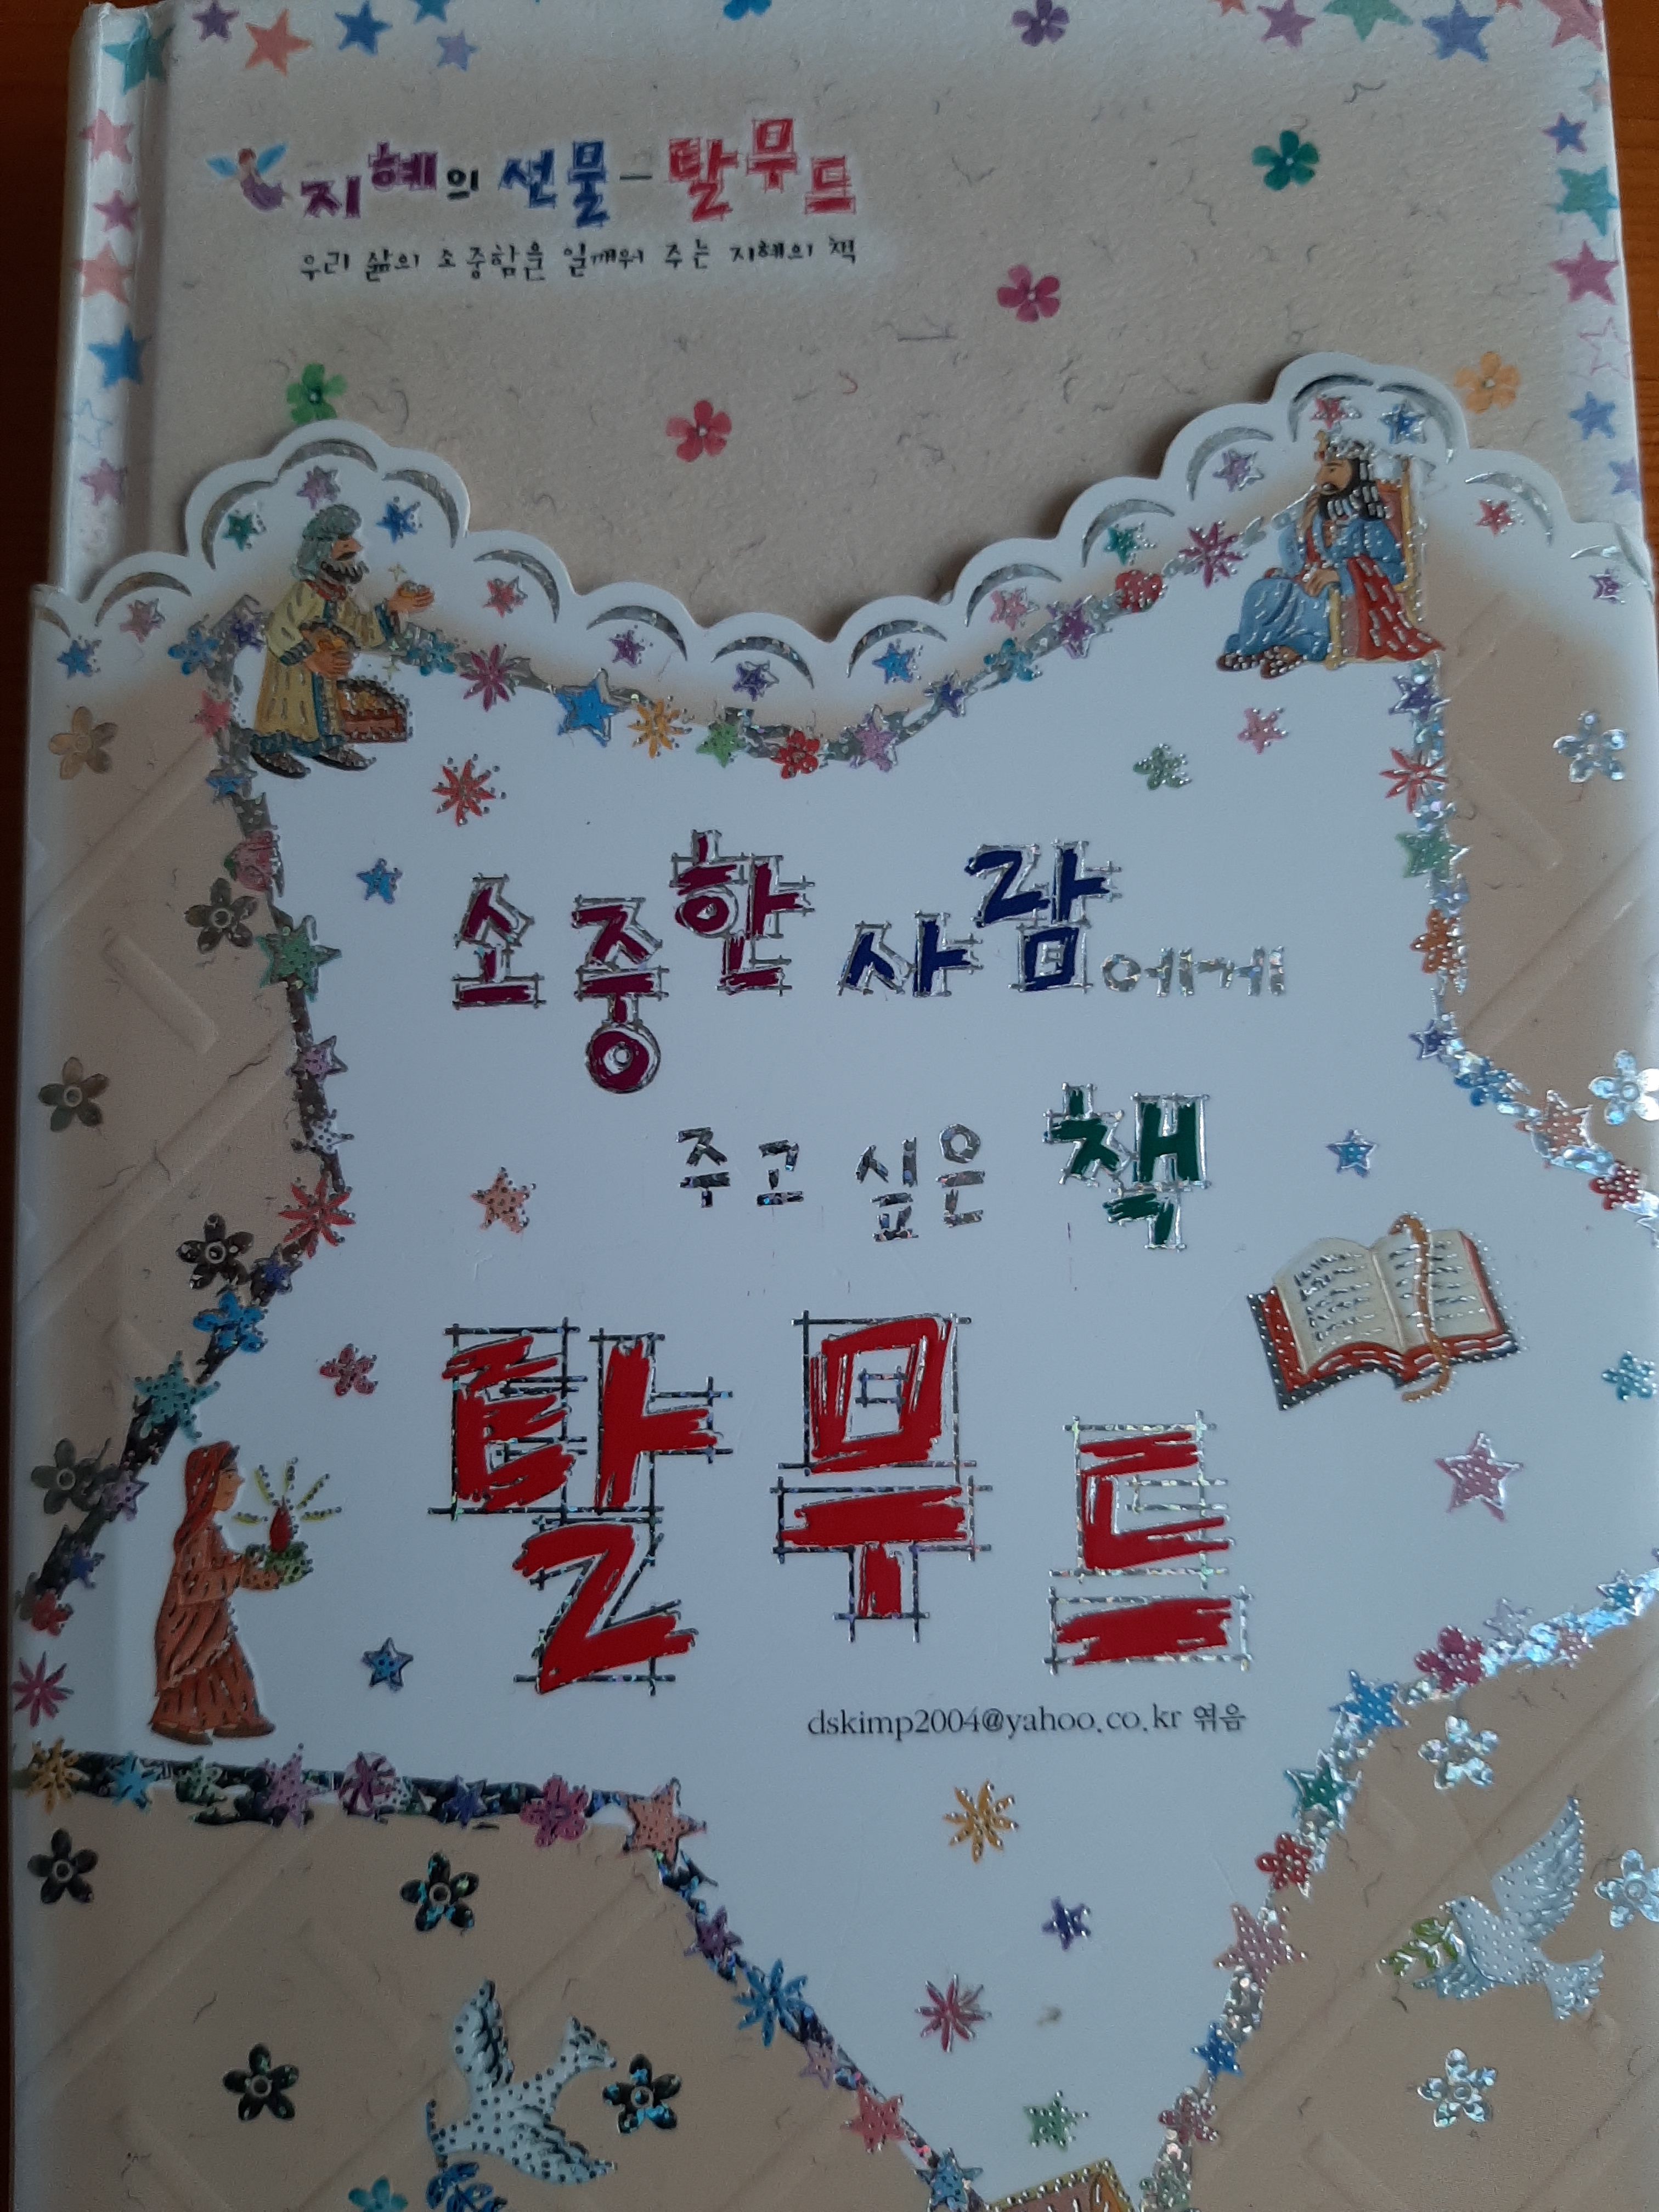 지혜의 선물-탈무드
우리 삶의 소중함을 일깨워 주는 지혜의 책
소중한 사람에게
주고 싶은 책
탈무드
dskimp2004@yahoo.co.kr 엮음